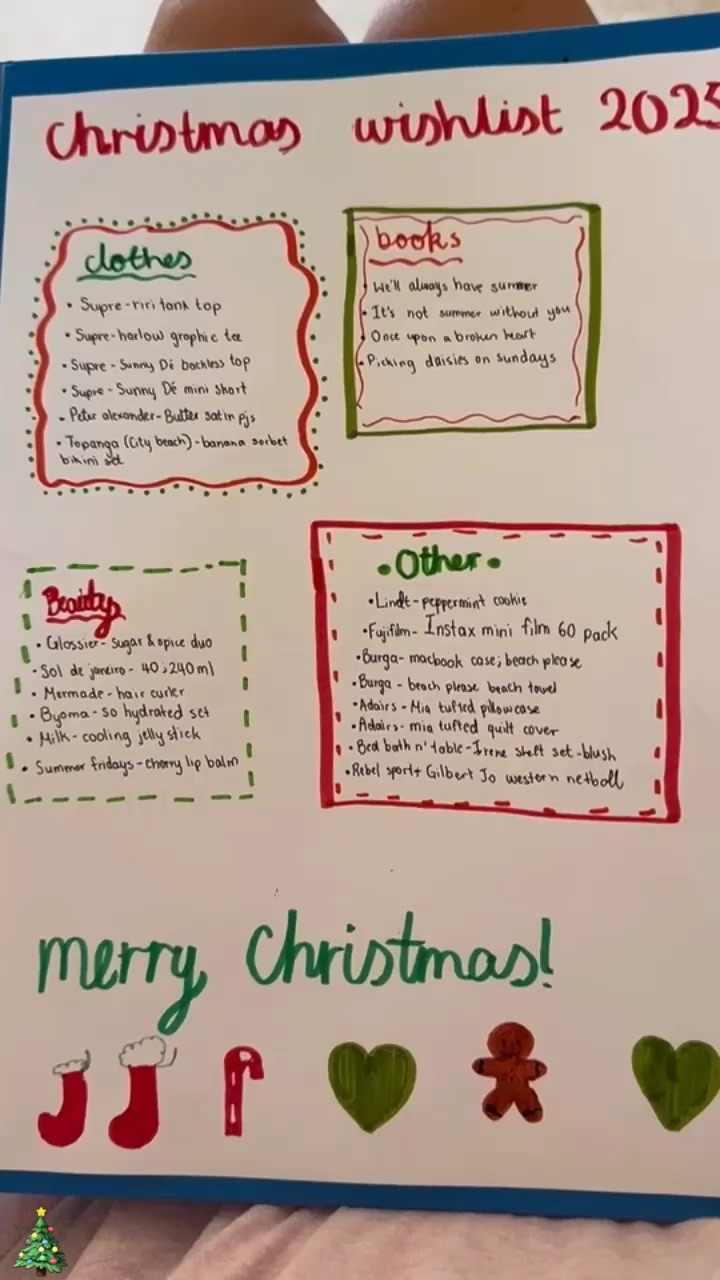 christmas wishlist 2025
clothes
• Supre-riri tank top
• Supre-harlow graphic tee
• Supre - Sunny Dé backless top
• Supre - Sunny Dé mini short
• Peter alexander-Butter satin pjs
• Topanga (City beach)-banana sorbet
bikini set
books
• We'll always have summer
• It's not summer without you
• Once upon a broken heart
• Picking daisies on sundays
Beauty
• Glossier- sugar & spice duo
• Sol de janeiro - 40, 240ml
• Mermade-hair curler
• Byoma-so hydrated set
• Milk-cooling jelly stick
• Summer fridays-cherry lip balm
• Other •
• Lindt-peppermint cookie
• Fujifilm- Instax mini film 60 pack
• Burga- macbook case; beach please
• Burga - beach please beach towel
• Adairs-Mia tufted pillowcase
• Adairs-mia tufted quilt cover
• Bed bath n' table-Irene sheet set-blush
• Rebel sport+ Gilbert Jo western netball
merry Christmas!